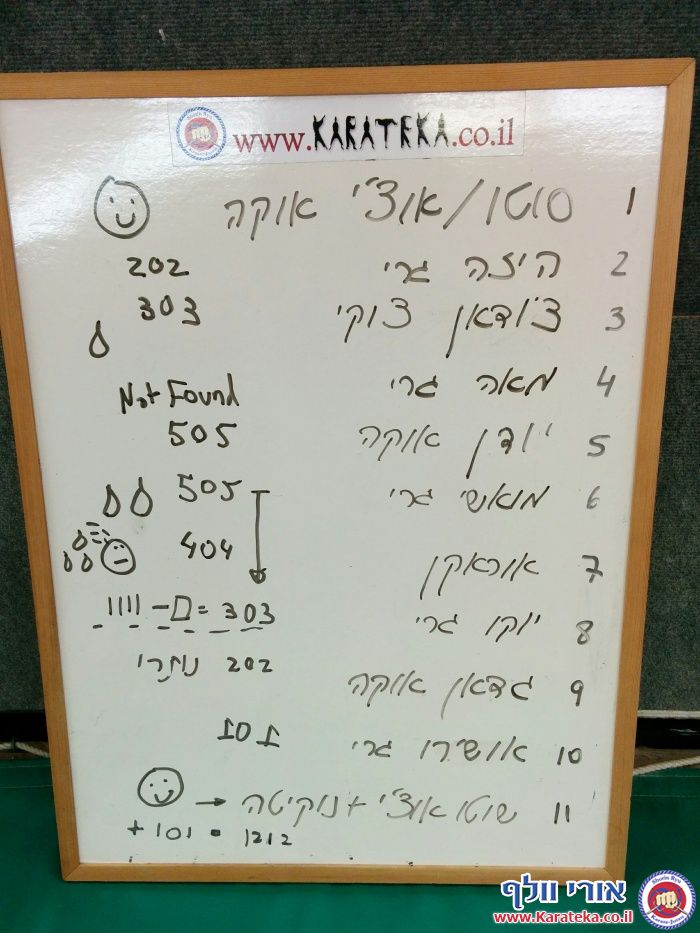 www.KARATEKA.co.il
1 סוטו/אוצ'י אוקה
2 היזה גרי 202
3 צ'ודאן צוקי 303
4 מאה גרי Not Found
5 יודן אוקה 505
6 מואשי גרי 505
7 אוראקן 404
8 יוקו גרי 303 = - ||||
9 גדאן אוקה 202 נותרו
10 אושירו גרי 101
11 שוטו אוצ'י + נוקיטה →
+ 101 = 1212
אורי וולף
www.Karateka.co.il